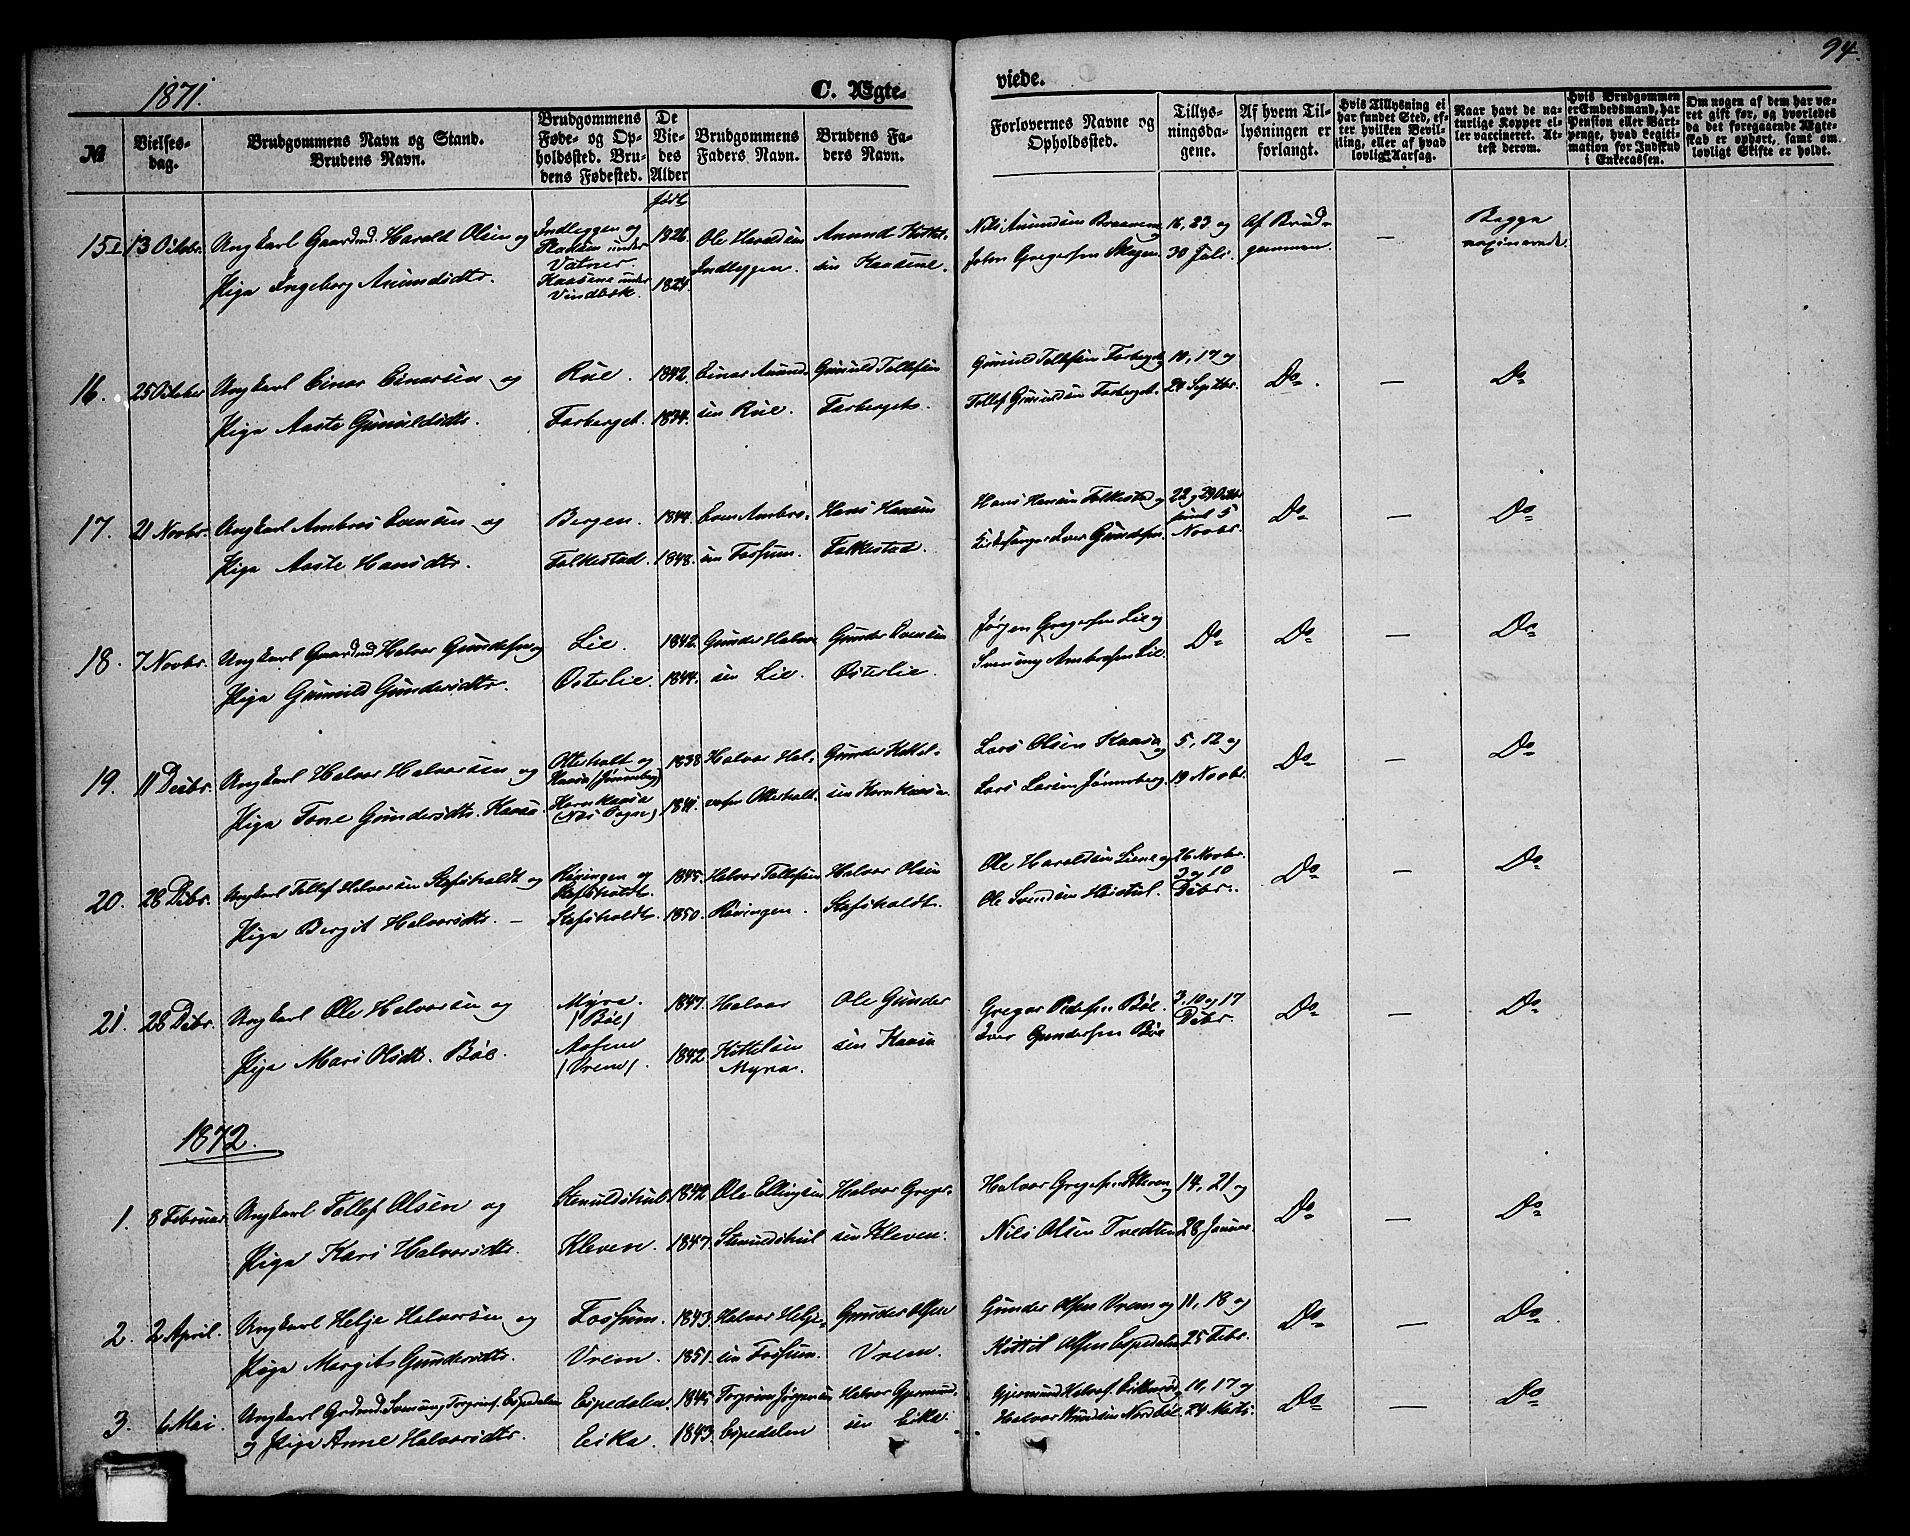 94.
1871.
C. Ægte-
viede.
№
Vielses-
dag.
Brudgommens Navn og Stand.
Brudens Navn.
Brudgommens
Føde- og Op-
holdssted. Bru-
dens Fødested.
De
Vie-
des
Alder
Brudgommens
Faders Navn.
Brudens Fa-
ders Navn.
Forlovernes Navne og
Opholdssted.
Tillys-
ningsda-
gene.
Af hvem Til-
lysningen er
forlangt.
Hvis Tillysning ei
har fundet Sted, ef-
ter hvilken Bevil-
ling, eller af hvad
lovlig Aarsag.
Naar havt de na-
turlige Kopper el-
ler vaccineret. At-
test derom.
Hvis Brudgommen
er Embedsmand, har
Pension eller Vart-
penge, hvad Legiti-
mation for Indskud
i Enkecassen.
Om nogen af dem har væ-
ret gift før, og hvorledes
da det foregaaende Ægte-
skab er ophørt, samt om
lovligt Skifte er holdt.
født
15 13 Octobr. Ungkarl Gaardmd. Harald Olsen og
Pige Ingeborg Amundsdtr.
Indleggen og
Pladsen under
Vatner
Kaasene under
Vindbek.
1826
1824.
Ole Haraldsen
Indleggen.
Amund Kittel-
sen Kaasene.
Nils Amundsen Braavene og
John Gregersen Skogen
16, 23 og
30 Juli.
Af Brud-
gommen.
—
Begge
vaxinerede.
16. 25 October Ungkarl Einar Einarsen og
Pige Aaste Gunuldsdtr.
Rue.
Farberget.
1842.
1834.
Einar Amund-
sen Rue.
Gunuld Tollefsen
Farberget.
Gunuld Tollefsen Farberget og
Tollef Gunuldsen Farberget.
10, 17 og
24 Septbr.
Do
—
Do
17. 21 Novbr. Ungkarl Ambros Evensen og
Pige Aaste Hansdtr.
Bergen.
Folkestad.
1844.
1848.
Even Ambro-
sen Fossum.
Hans Hansen
Folkestad.
Hans Hansen Folkestad og
Kirkesanger Iver Gundersen.
22 og 29 Octbr
samt 5
Novbr.
Do
—
Do
18. 7 Novbr. Ungkarl Gaardmd Halvor Gundersen og
Pige Gunuld Gundersdtr.
Lie.
Østerlie.
1842.
1844.
Gunder Halvor-
sen Lie.
Gunder Evensen
Østerlie.
Jørgen Gregersen Lie og
Svenung Ambrosen Lie.
Do
Do
—
Do
19. 11 Decbr. Ungkarl Halvor Halvorsen og
Pige Tone Gundersdtr. Kaasa.
Otterholt og
Kaasa (Jønneberg)
Kornkaasa
(Nes Sogn)
1838
1841.
Halvor Hal-
vorsen Otterholt.
Gunder Kittel-
sen Kornkaasa.
Lars Olsen Kaasa og
Lars Larsen Jønneberg.
5, 12 og
19 Novbr.
Do
—
Do
20. 28 Decbr. Ungkarl Tollef Halvorsen Stefsholdt og
Pige Bergit Halvorsdtr. —
Riningen og
Stefsholdt.
Stefsholdt.
1845.
1850.
Halvor Tollefsen
Riningen.
Halvor Olsen
Stefsholdt.
Ole Haraldsen Liene og
Ole Svendsen Heistul.
26 Novbr.
3 og 10
Decbr.
Do
—
Do
21. 28 Decbr. Ungkarl Ole Halvorsen og
Pige Mari Olsdtr. Bøe.
Myra.
(Bøe)
Aasene
(Vrem).
1847.
1842
Halvor
Kittelsen
Myra.
Ole Gunder
sen Kaasa
Gregar Pedersen Bøe.
Iver Gundersen Bøe
3. 10 og 17
Decbr.
Do
—
Do
1872.
1. 8 Februar Ungkarl Tollef Olsen og
Pige Kari Halvorsdtr.
Stenuldshul.
Kleven.
1842
1847.
Ole Ellingsen
Stenuldshul
Halvor Greger-
sen Kleven.
Halvor Gregersen Kleven og
Nils Olsen Tvedten
14, 21 og
28 Januar
Do
—
Do
2. 2 April. Ungkarl Helje Halvorsen og
Pige Margit Gundersdtr.
Fossum.
Vrem.
1843.
1851.
Halvor Helje-
sen Fossum.
Gunder Olsen
Vrem.
Gunder Olsen Vrem og
Kittil Olsen Espedalen
11, 18 og
25 Febr.
Do
—
Do
3. 6 Mai. Ungkarl Grdmd. Svenung Torgrims. Espedalen
og Pige Anne Halvorsdtr.
Espedalen.
Eika.
1845
1843.
Torgrim Jørgensen
Espedalen
Halvor Gjermund-
sen Eika.
Gjermund Halvors. Eika og
Halvor Knudsen Nordbø.
10, 17 og
24 Marts.
Do
—
Do